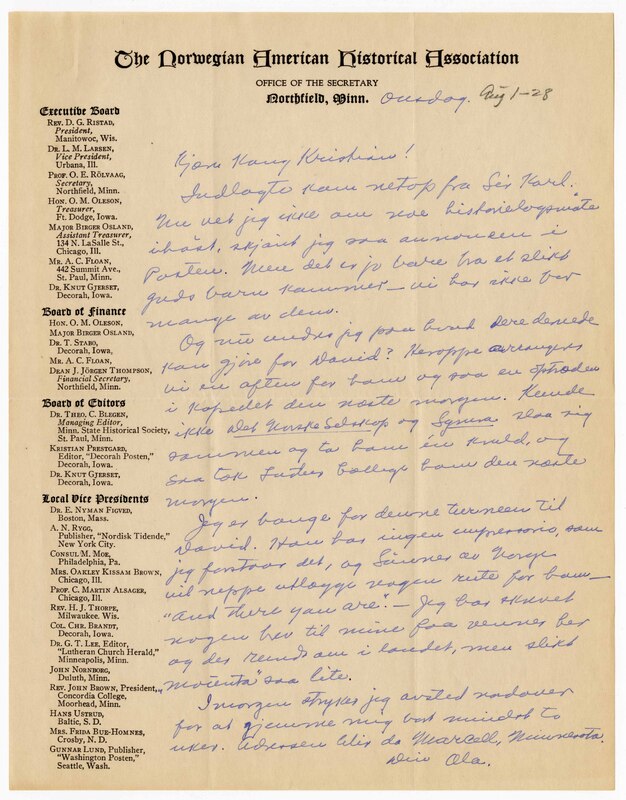 The Norwegian American Historical Association
OFFICE OF THE SECRETARY
Northfield, Minn. Onsdag. Aug 1-28
Executive Board
REV. D. G. RISTAD,
President,
Manitowoc, Wis.
DR. L. M. LARSEN,
Vice President,
Urbana, Ill.
PROF. O. E. RÖLVAAG,
Secretary,
Northfield, Minn.
HON. O. M. OLESON,
Treasurer,
Ft. Dodge, Iowa.
MAJOR BIRGER OSLAND,
Assistant Treasurer,
134 N. LaSalle St.,
Chicago, Ill.
MR. A. C. FLOAN,
442 Summit Ave.,
St. Paul, Minn.
DR. KNUT GJERSET,
Decorah, Iowa.
Board of Finance
HON. O. M. OLESON,
MAJOR BIRGER OSLAND,
DR. T. STABO,
Decorah, Iowa.
MR. A. C. FLOAN,
DEAN J. JÖRGEN THOMPSON,
Financial Secretary,
Northfield, Minn.
Board of Editors
DR. THEO. C. BLEGEN,
Managing Editor,
Minn. State Historical Society,
St. Paul, Minn.
KRISTIAN PRESTGARD,
Editor, "Decorah Posten,"
Decorah, Iowa.
DR. KNUT GJERSET,
Decorah, Iowa.
Local Vice Presidents
DR. E. NYMAN FIGVED,
Boston, Mass.
A. N. RYGG,
Publisher, "Nordisk Tidende,"
New York City.
CONSUL M. MOE,
Philadelphia, Pa.
MRS. OAKLEY KISSAM BROWN,
Chicago, Ill.
PROF. C. MARTIN ALSAGER,
Chicago, Ill.
REV. H. J. THORPE,
Milwaukee. Wis.
COL. CHR. BRANDT,
Decorah, Iowa.
DR. G. T. LEE, Editor,
"Lutheran Church Herald,"
Minneapolis, Minn.
JOHN NORNBORG,
Duluth, Minn.
REV. JOHN BROWN, President,
Concordia College,
Moorhead, Minn.
HANS USTRUD,
Baltic, S. D.
MRS. FRIDA BUE-HOMNES,
Crosby, N. D.
GUNNAR LUND, Publisher,
"Washington Posten,"
Seattle, Wash.
Kjære Kong Kristian!
Indlagte kom netop fra Sis Karl.
Nu vet jeg ikke om noe historielagsmøte
ihøst, skjønt jeg saa annonsen i
Posten. Men det er jo bare fra et slikt
guds barn kommer — vi har ikke for
mange av dem.
Og nu undres jeg paa hvad dere dernede
kan gjøre for David? Heroppe arrangeres
vi en aften for ham og saa en
i kapellet den næste morgen. Kunde
ikke Det Norske Selskap og Symra slaa sig
sammen og ta ham en kveld, og
saa tok Luther College ham den næste
morgen.
Jeg er bange for denne turneen til
David. Han har ingen impressario, som
jeg forstaar det, og Sønner av Norge
vil neppe utlægge nogen rute for ham —
"And there you are". — Jeg har skrevet
nogen brev til mine faa venner her
og der rundt om i landet, men slikt
"mo'enta" saa lite.
Imorgen strykes jeg avsted nordover
for at gjemme mig bort mindst to
uker. Adressen blir da Marcell, Minnesota.
Din Ola.